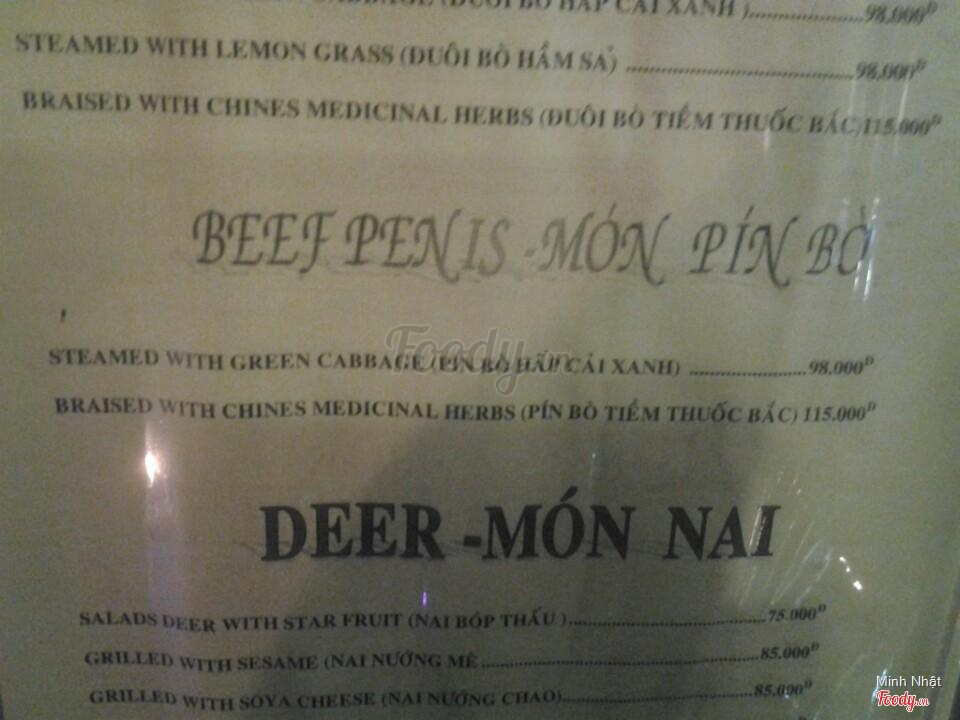 CABBAGE (ĐUÔI BÒ HẤP CẢI XANH )..................98.000Đ
STEAMED WITH LEMON GRASS (ĐUÔI BÒ HẦM SẢ) ..............................98.000Đ
BRAISED WITH CHINES MEDICINAL HERBS (ĐUÔI BÒ TIỀM THUỐC BẮC)115.000Đ
BEEF PENIS -MÓN PÍN BÒ
STEAMED WITH GREEN CABBAGE (PÍN BÒ HẤP CẢI XANH) ....................98.000Đ
BRAISED WITH CHINES MEDICINAL HERBS (PÍN BÒ TIỀM THUỐC BẮC) 115.000Đ
DEER -MÓN NAI
SALADS DEER WITH STAR FRUIT (NAI BÓP THẤU )..............................75.000Đ
GRILLED WITH SESAME (NAI NƯỚNG MÈ..........................................85.000Đ
GRILLED WITH SOYA CHEESE (NAI NƯỚNG CHAO)..............................85.000Đ
Foody.vn
Minh Nhật
Foody.vn